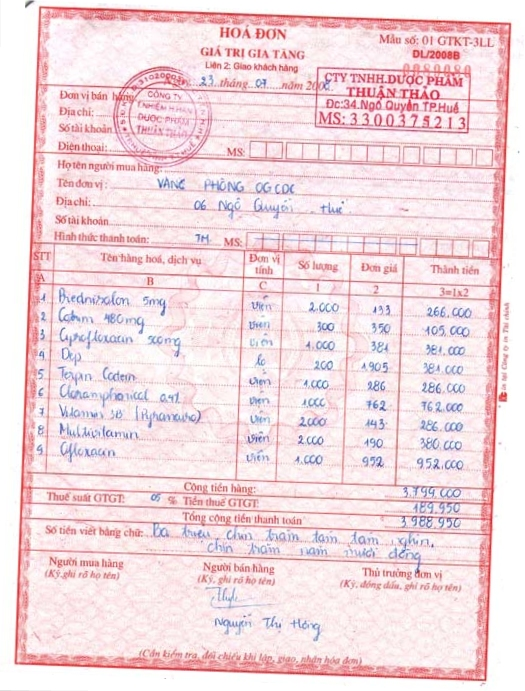 HOÁ ĐƠN
GIÁ TRỊ GIA TĂNG
Liên 2: Giao khách hàng
Mẫu số: 01 GTKT-3LL
DL/2008B
0080080
23 tháng 07 năm 200
CTY TNHH.DƯỢC PHẨM
THUẬN THẢO
Đc:34.Ngô Quyền TP.Huế
MS: 3300375213
CÔNG TY
DƯỢC PHẨM
THUẬN THẢO
Đơn vị bán hàng
Địa chỉ:
Số tài khoản
Điện thoại: MS:
Họ tên người mua hàng:
Tên đơn vị: VĂNG PHÒNG OGCDC
Địa chỉ: 06 Ngô Quyền Huế
Số tài khoản
Hình thức thanh toán: TM MS:
STT Tên hàng hoá, dịch vụ Đơn vị tính Số lượng Đơn giá Thành tiền
A B C 1 2 3=1x2
1 Prednisolon 5mg viên 2.000 133 266.000
2 Cotrim 480mg viên 300 350 105.000
3 Ciprofloxacin 500mg viên 1.000 381 381.000
4 Dep lo 200 1905 381.000
5 Terpin Codein viên 1.000 286 286.000
6 Cloramphenicol viên 1000 762 762.000
7 Vitamin 3B viên 2000 143 286.000
8 Multivitamin viên 2.000 190 380.000
9 Ofloxacin viên 1.000 952 952.000
Cộng tiền hàng: 3.799.000
Thuế suất GTGT: 05 % Tiền thuế GTGT: 189.950
Tổng cộng tiền thanh toán 3.988.950
Số tiền viết bằng chữ: Ba triệu chín trăm tám tám nghìn,
chín trăm năm mươi đồng
Người mua hàng Người bán hàng Thủ trưởng đơn vị
(Ký,ghi rõ họ tên) (Ký, ghi rõ họ tên) (Ký, đóng dấu, ghi rõ họ tên)
Nguyễn Thị Hồng
(Cần kiểm tra, đối chiếu khi lập, giao, nhận hóa đơn)